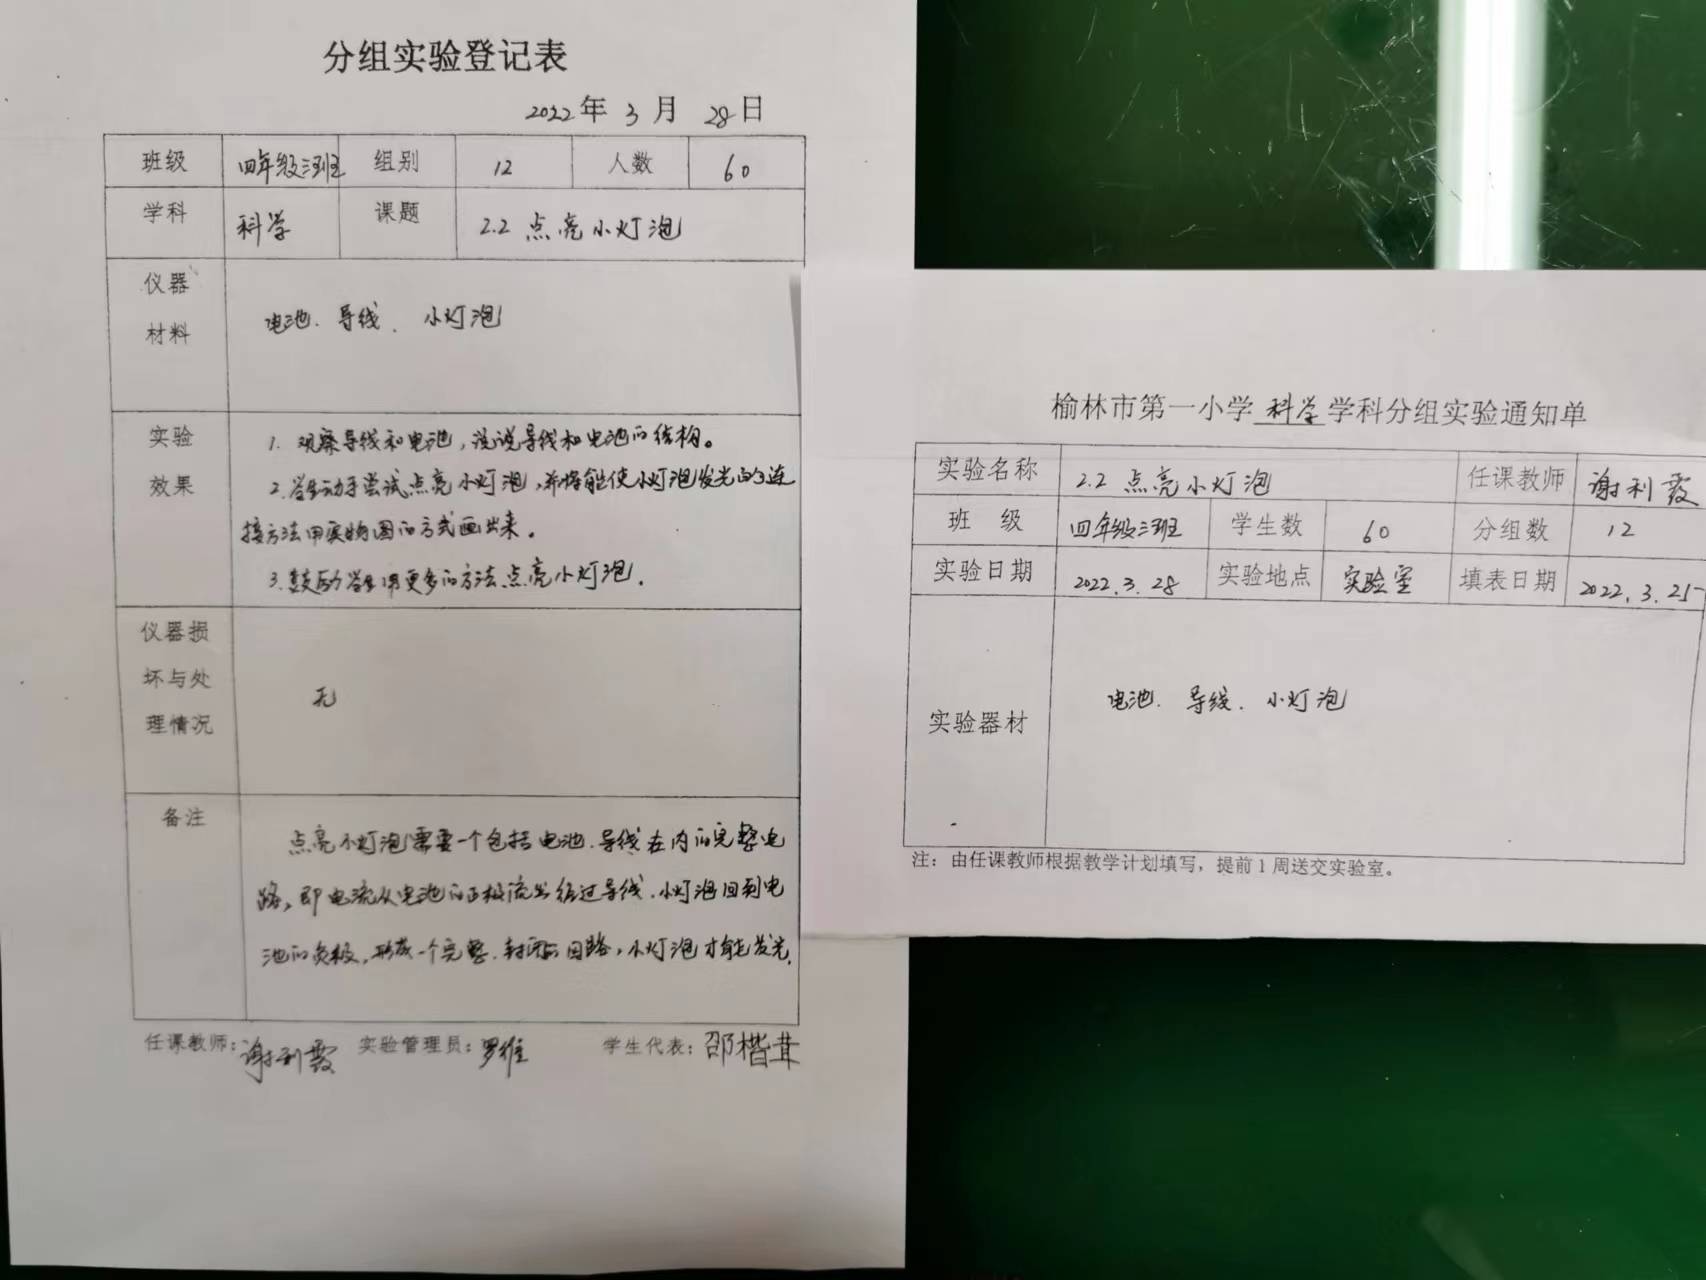 分组实验登记表
2022年 3 月 28日
班级 四年级三班 组别 12 人数 60
学科 科学 课题 2.2 点亮小灯泡
仪器
材料
电池、导线、小灯泡
实验
效果
1. 观察导线和电池，说说导线和电池的结构。
2. 学生动手尝试点亮小灯泡，并将能使小灯泡发光的连
接方法用实物图的方式画出来。
3. 鼓励学生用更多的方法点亮小灯泡。
仪器损
坏与处
理情况
无
备注
点亮小灯泡需要一个包括电池、导线在内的完整电
路，即电流从电池的正极流出经过导线、小灯泡回到电
池的负极，形成一个完整、封闭的回路，小灯泡才能发光。
任课教师：谢利霞 实验管理员：罗维 学生代表：邵楷茸
榆林市第一小学 科学 学科分组实验通知单
实验名称 2.2 点亮小灯泡 任课教师 谢利霞
班 级 四年级三班 学生数 60 分组数 12
实验日期 2022.3.28 实验地点 实验室 填表日期 2022.3.25
实验器材 电池、导线、小灯泡
注：由任课教师根据教学计划填写，提前1周送交实验室。